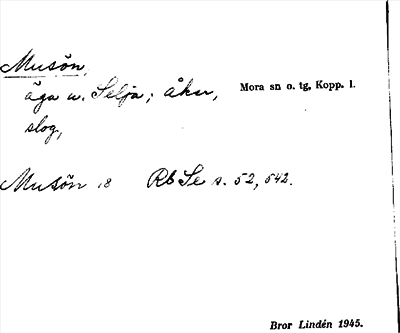 Musön,
äga u. Selja; åker, Mora sn o. tg, Kopp. l.
slog,
Musön 18 Rb Se s. 52, 542.
Bror Lindén 1945.